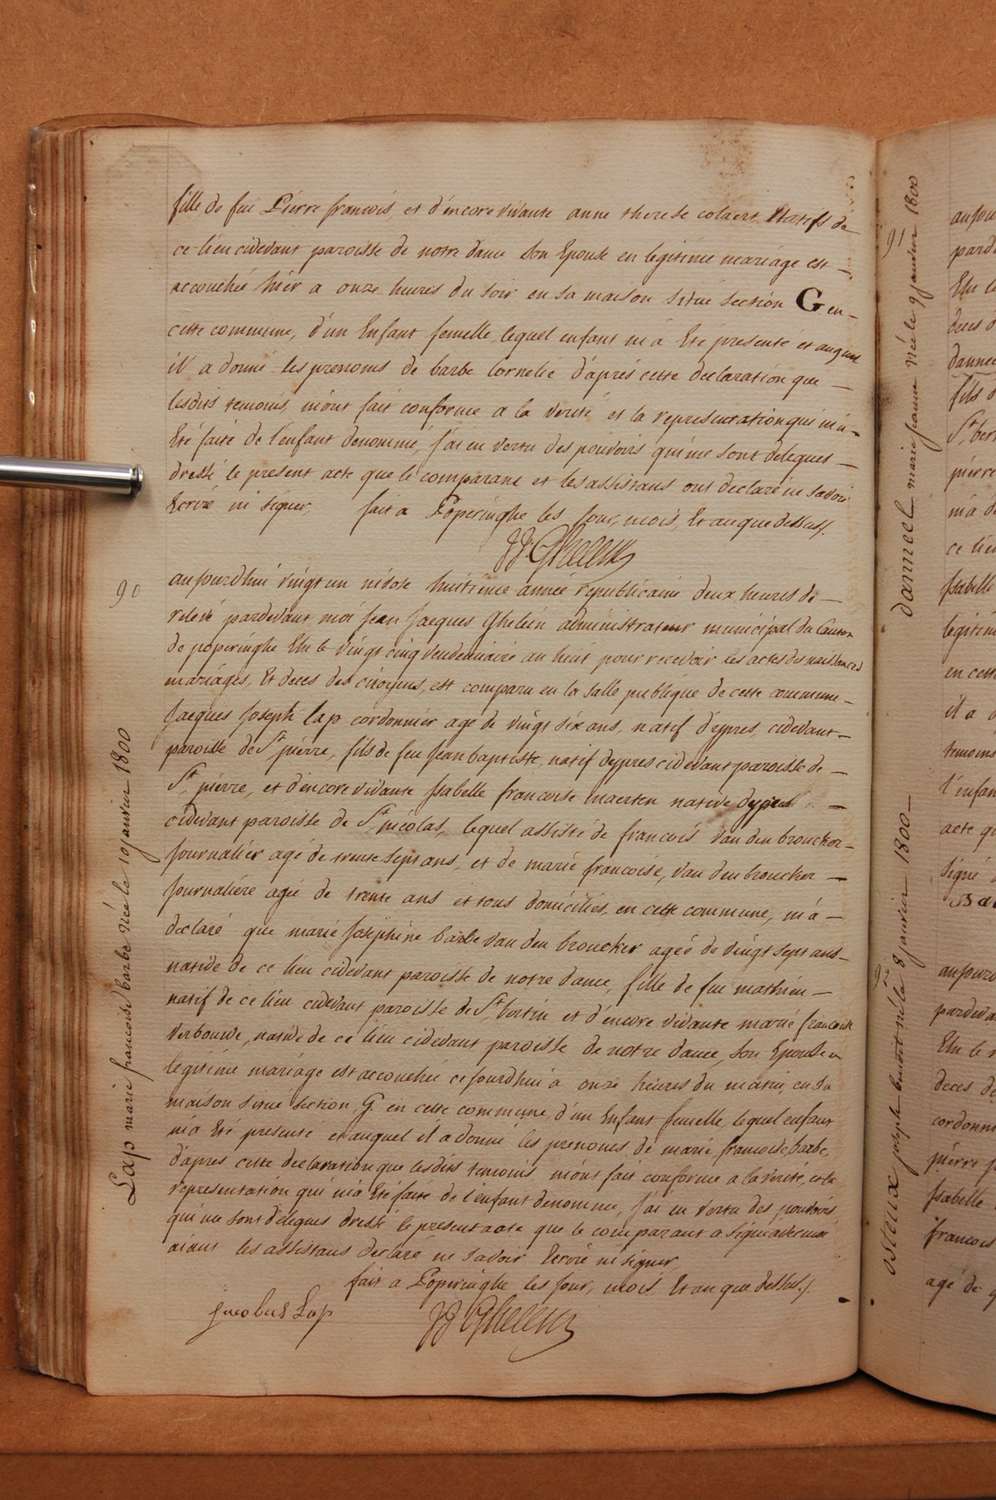 fille de feu Pierre francois, et d'éncore vivante anne therese colaert natifs de
ce lieu cidevant paroisse de notre dame son Epouse en legitime mariage est
accouchée hiér a onze heures du soir en sa maison situé section G en
cette commune, d'un Enfant femelle, lequel enfant m'a Eté presenté et auquel
il a donné les prenoms de barbe Cornelie d'aprés cette declaration que
lesdits temoins m'ont fait conforme a la verité et la representation qui m'a
Eté faite de l'enfant denommé, j'ai en vertu des pouvoirs qui me sont delegues
dressé le present acte que le comparant et les assistans ont declaré ne savoir
Ecrire ni signer. fait a Poperinghe les Jour, mois, Et an que dessus.
JJ Ghelein
90
aujourdhui vingt un nivose huitieme année republicaine deux heures de
relevé pardevant moi Jean Jacques Ghelein administrateur municipal du Canton
de poperinghe Elu le vingt cinq vendemiaire an huit pour recevoir les actes de naissances
mariages, Et deces des citoyens, est comparu en la salle publique de cette commune
Jacques Joseph Lap cordonnier age de vingt six ans, natif d'ypres, cidevant
paroisse de St. piérre, fils de feu Jean baptiste, natif d'ypres cidevant paroisse de
St. piérre, et d'éncore vivante Isabelle francoise maerten native d'ypres
cidevant paroisse de St. nicolas, lequel assisté de francois van den broucker
journaliér agé de trente sept ans, et de marie francoise, van den broucker
journaliére agée de trente ans et tous domiciliés en cette commune, m'a
declaré que marie Josephine barbe van den broucker agée de vingt sept ans
native de ce lieu cidevant paroisse de notre dame, fille de feu mathieu
natif de ce lieu cidevant paroisse de St. bertin et d'éncore vivante marie francoise
verbourde, native de ce lieu cidevant paroisse de notre dame, son Epouse en
legitime mariage est accouchée cejourdhui a onze heures du matin, en sa
maison situe section G en cette commune, d'un Enfant femelle, lequel enfant
m'a Eté presenté et auquel il a donné les prenoms de marie francoise barbe,
d'apres cette declaration que lesdits temoins m'ont fait conforme a la verité, et la
representation qui m'a Eté faite de l'enfant denommé, j'ai en vertu des pouvoirs
qui me sont delegues dressé le present acte que le comparant a signé avec moi
aiant les assistans declaré ne savoir Ecrire ni signer
fait a Poperinghe les Jour, mois Et an que dessus.
Jacobus Lap JJ Ghelein
Lap marie francoise barbe née le 10 janvier 1800
91
danneel marie joanne née le 9 janvier 1800
92
osteux joseph benoit né le 8 janvier 1800
pardev
Elu le
deces d
dannee
fils d
St. ber
piérre
m'a d
ce lieu
Isabelle
legitim
en cett
il a d
temoins
l'enfan
acte q
signé
pardeva
Elu le
deces d
cordonn
piérre
Isabelle
francois
agé de